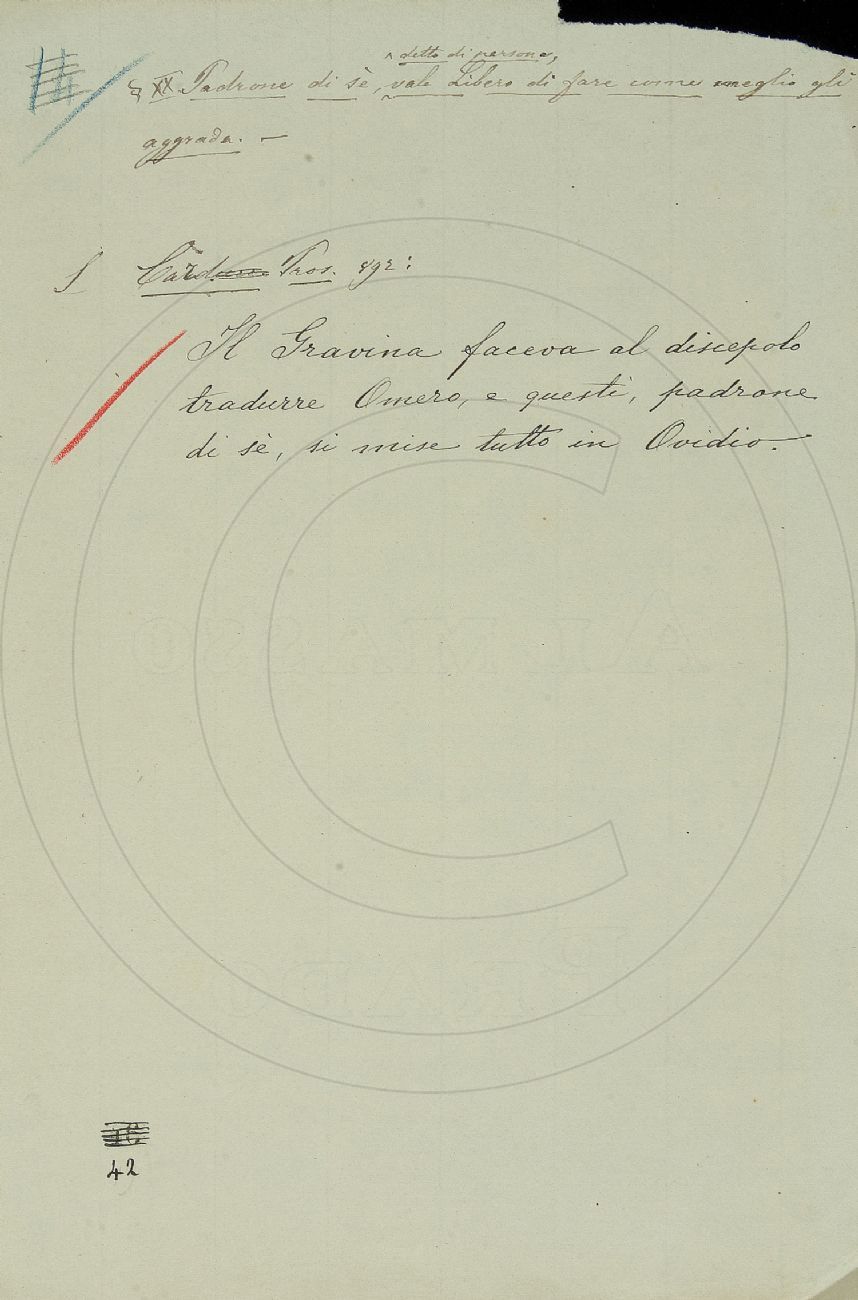 detto di persona,
§ XX Padrone di sè, vale Libero di fare come meglio gli
aggrada. —
Card. Pros. 892:
Il Gravina faceva al discepolo
tradurre Omero, e questi, padrone
di sè, si mise tutto in Ovidio.
AL MASSO
PRATO
42